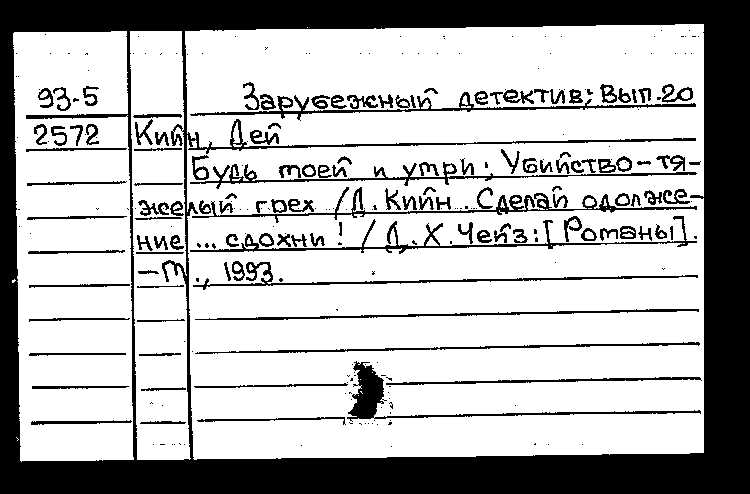 93-5 Зарубежный детектив; Вып.20
2572 Кийн, Дей
Будь моей и утри; Убийство-тя-
желый грех /Д. Кийн. Сделай одолже-
ние... сдохни! / Д. Х. Чейз: [Романы].
-М., 1993.